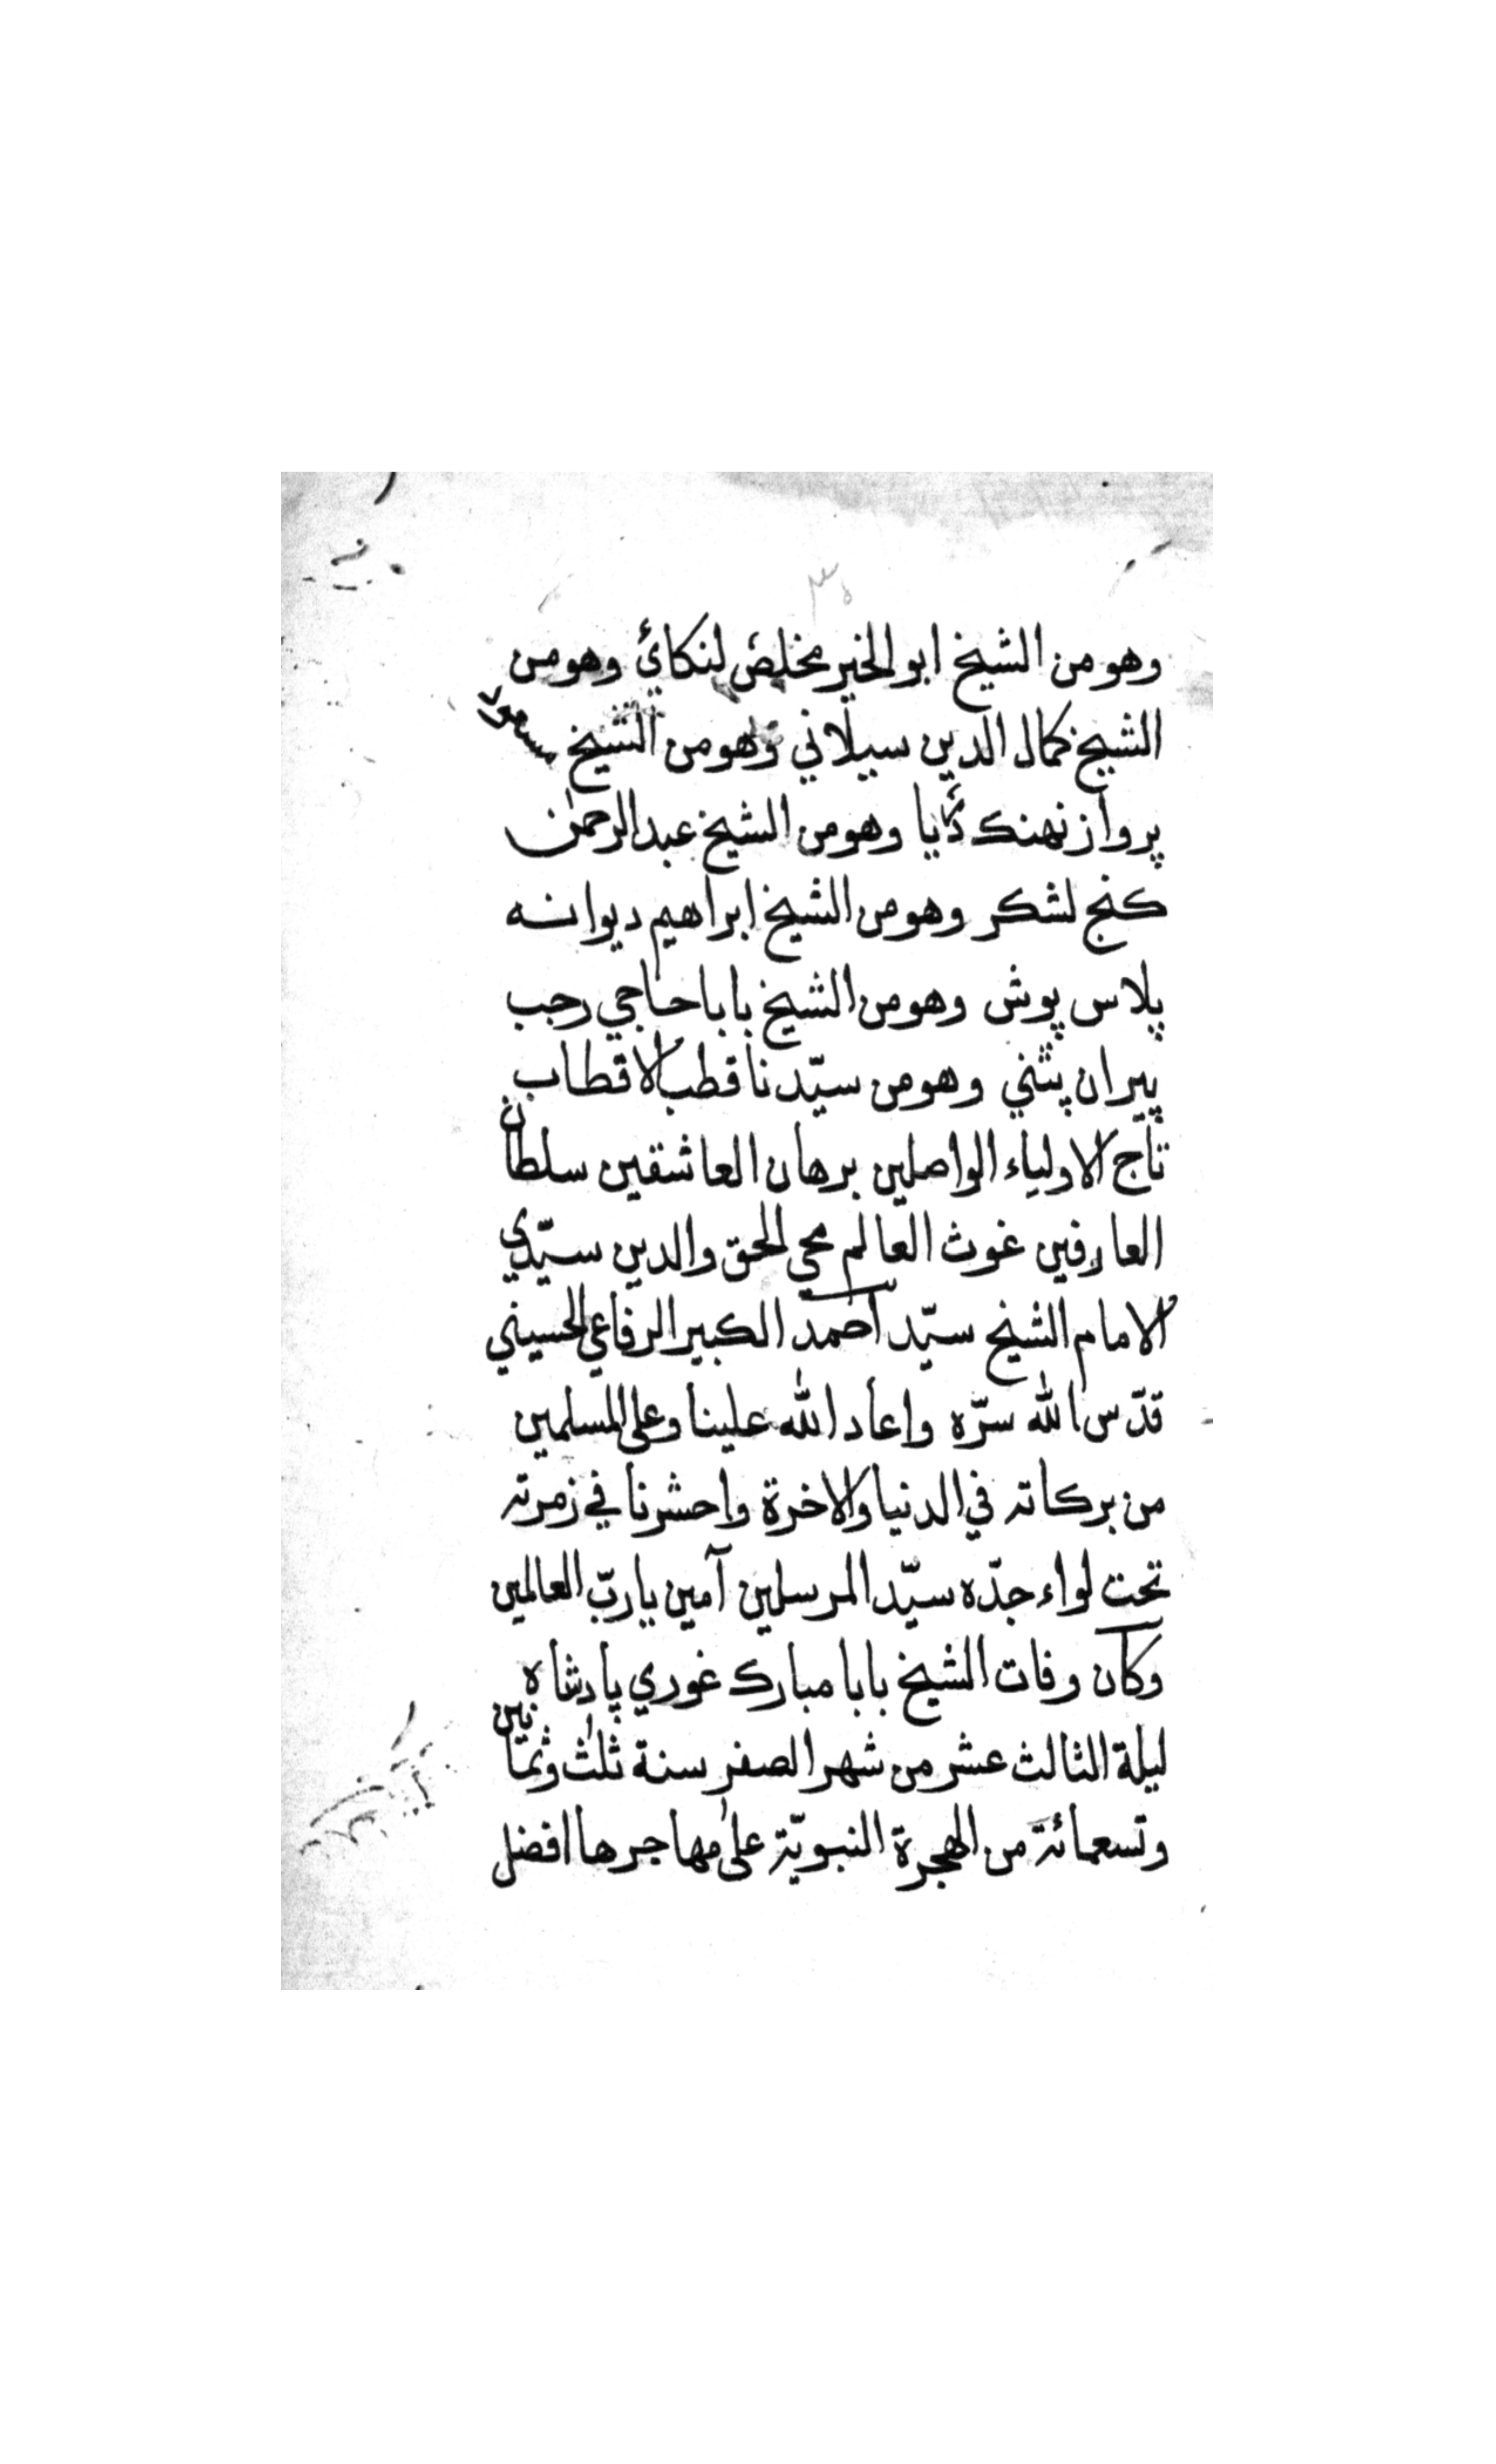 ٣٥
وهو من الشيخ ابو الخير مخلص لنكائ وهو من
الشيخ كمال الدين سيلاني وهو من الشيخ مسعود
پرواز نهنك وهو من الشيخ عبد الرحمن
كنج لشكر وهو من الشيخ ابراهيم ديوانه
پلاس پوش وهو من الشيخ بابا حاجي رجب
پيران پتني وهو من سيّدنا قطب الاقطاب
تاج الاولياء الواصلين برهان العاشقين سلطان
العارفين غوث العالم محي الحق والدين سيّدي
الامام الشيخ سيّد احمد الكبير الرفاعي الحسيني
قدّس الله سرّه واعاد الله علينا وعلى المسلمين
من بركاته في الدنيا والاخرة واحشرنا في زمرته
تحت لواء جدّه سيّد المرسلين آمين يا ربّ العالمين
وكان وفات الشيخ بابا مبارك غوري پادشاه
ليلة الثالث عشر من شهر الصفر سنة ثلث وثمانين
وتسعمائة من الهجرة النبويّة على مهاجرها افضل